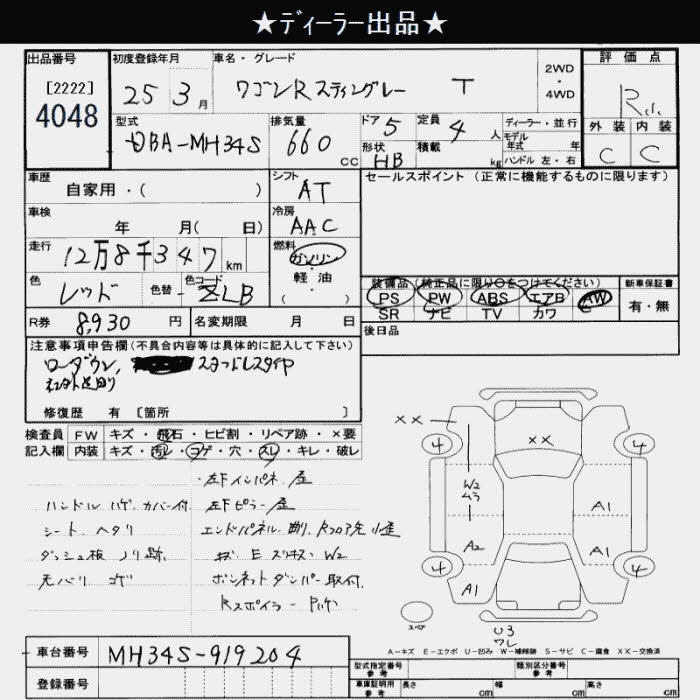 ★ディーラー出品★
出品番号
[2222]
4048
初度登録年月
25 3月
車名・グレード
ワゴンR スティングレー T
2WD・4WD
評価点
R
外装 内装
C C
型式
DBA-MH34S
排気量
660 CC
ドア 5
形状 HB
定員 4 人
積載 kg
ディーラー・並行
モデル年式 年
ハンドル 左・右
車歴
自家用・( )
シフト
AT
セールスポイント (正常に機能するものに限ります)
車検
年 月( 日)
冷房
AAC
走行
12万8千347 km
燃料
ガソリン
軽油
( )
色
レッド
色替
色コード
ZLB
装備品(純正品に限り○をつけてください)
PS PW ABS エアB AW
SR ナビ TV カワ
新車保証書
有・無
R券
8,930 円
名変期限 月 日
後日品
注意事項申告欄(不具合内容等は具体的に記入して下さい)
ローダウン, スタッドレスタイヤ
修復歴 有 [箇所 ]
検査員記入欄
FW キズ・飛石・ヒビ割・リペア跡・×要
内装 キズ・汚レ・コゲ・穴・スレ・キレ・破レ
左Fインパネ 歪
ハンドル ハゲ カバー付 左Fピラー 歪
シート ヘタリ エンドパネル
ダッシュ板 ノリ跡
天バリ コゲ ボンネットダンパー取付
Rスポイラー
××
××
4
4
W2
ムラ
A1
A2
A1
4
4
A1
スペア
U3
ワレ
A-キズ E-エクボ U-凹み W-補修跡 S-サビ C-腐食 ××-交換済
車台番号
MH34S-919204
登録番号
型式指定番号 参考
類別区分番号 参考
車庫証明用 参考
長さ cm
幅 cm
高さ cm